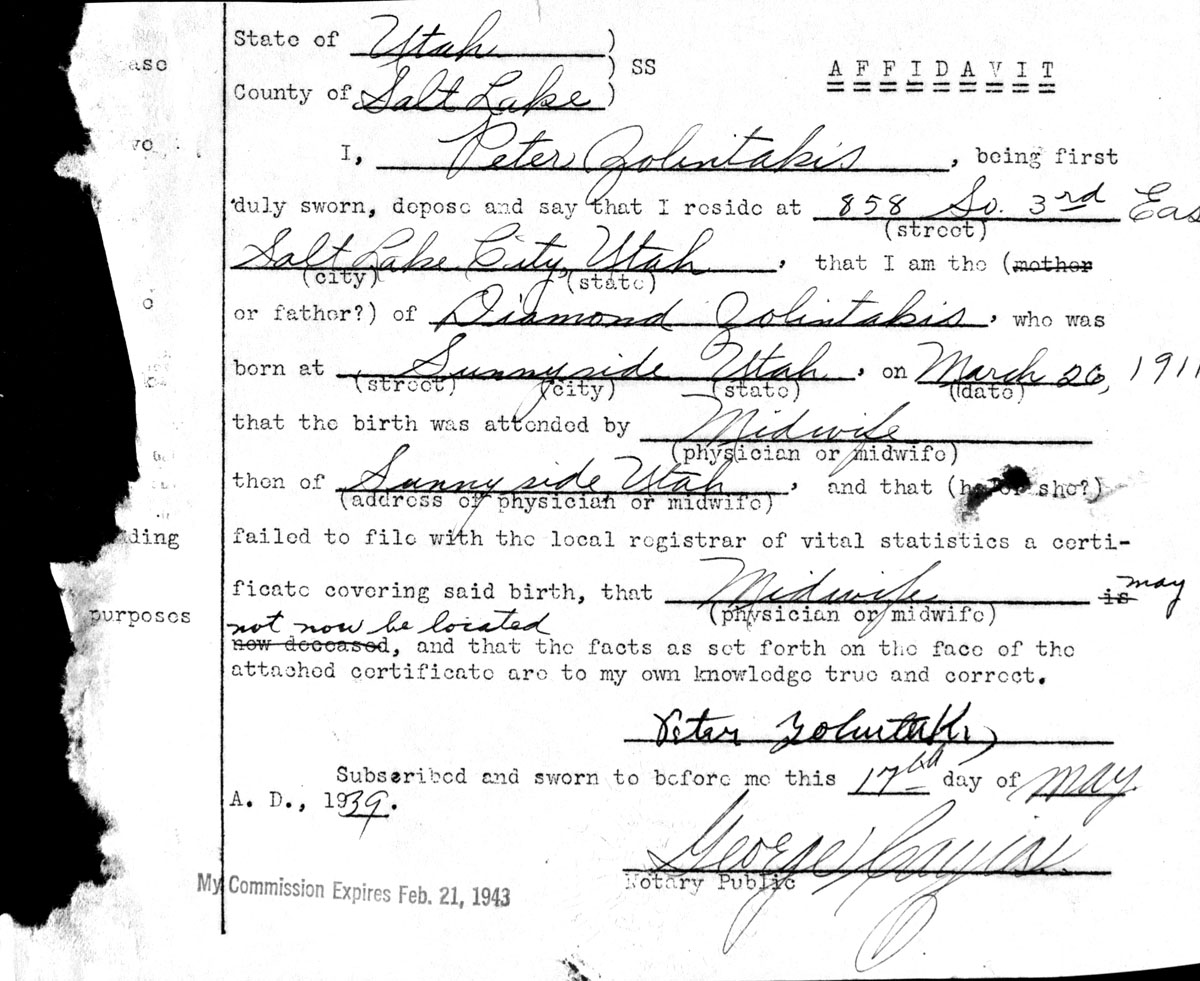 State of Utah )
) SS
AFFIDAVIT
County of Salt Lake )
I, Peter Zolintakis, being first
duly sworn, depose and say that I reside at 858 So. 3rd Eas
(street)
Salt Lake City, Utah, that I am the (mother
(city) (state)
or father?) of Diamond Zolintakis, who was
born at Sunnyside Utah, on March 26, 1911
(street) (city) (state) (date)
that the birth was attended by Midwife
(physician or midwife)
then of Sunnyside Utah, and that (he or she?)
(address of physician or midwife)
failed to file with the local registrar of vital statistics a certi-
ficate covering said birth, that Midwife is may
(physician or midwife)
not now be located
now deceased, and that the facts as set forth on the face of the
attached certificate are to my own knowledge true and correct.
Peter Zolintakis
Subscribed and sworn to before me this 17th day of May
A. D., 1939.
George
Notary Public
My Commission Expires Feb. 21, 1943
ase
wo
ding
purposes